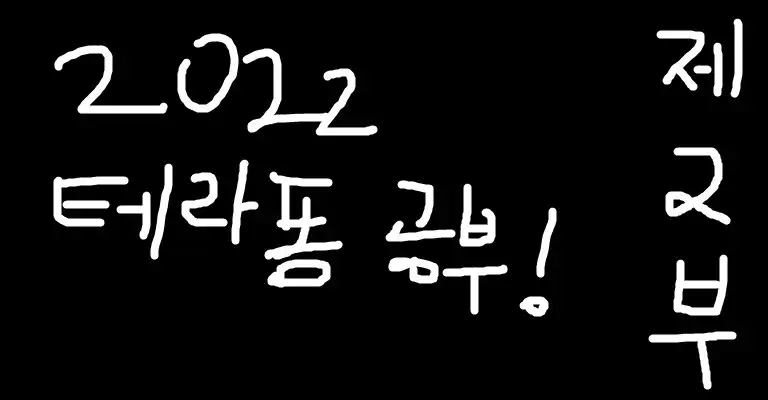 2022
테라폼 공부!
제2부